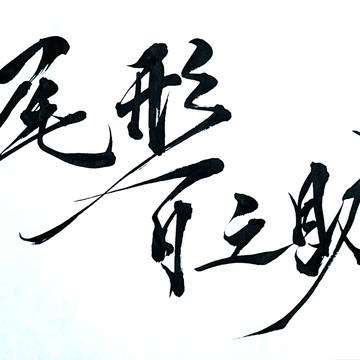 尾形
百之助